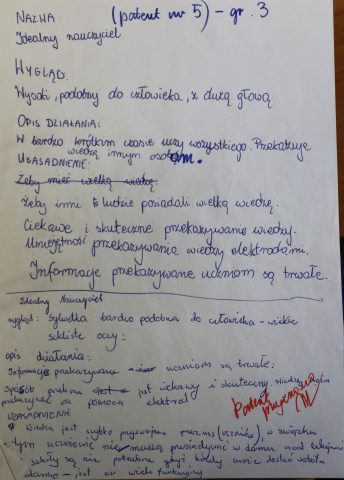 NAZWA: (patent nr 5) - gr. 3
Idealny nauczyciel
WYGLĄD.
Wysoki, podobny do człowieka, z dużą głową.
OPIS DZIAŁANIA:
W bardzo krótkim czasie uczy wszystkiego. Przekazuje
wiedzę innym osobom.
UZASADNIENIE:
Żeby mieć wielką wiedzę.
Żeby inni ludzie posiadali wielką wiedzę.
Ciekawe i skuteczne przekazywanie wiedzy.
Umiejętność przekazywania wiedzy elektrodami.
Informacje przekazywane uczniom są trwałe.
Idealny nauczyciel
wygląd: Sylwetka bardzo podobna do człowieka - wielkie
szkliste oczy:
opis działania:
Informacje przekazywane uczniom są trwałe:
Sposób przekazu jest ciekawy i skuteczny. Wiedzę
przekazuje za pomocą elektrod
Patent przyznano
UZASADNIENIE
Wiedza jest szybko przyswajana przez nas (uczniów), w związku
z tym uczniowie nie muszą przesiadywać w domu nad lekcjami
szkoły są nie potrzebne gdyż każdy może dostać robota
- jest on wielofunkcyjny